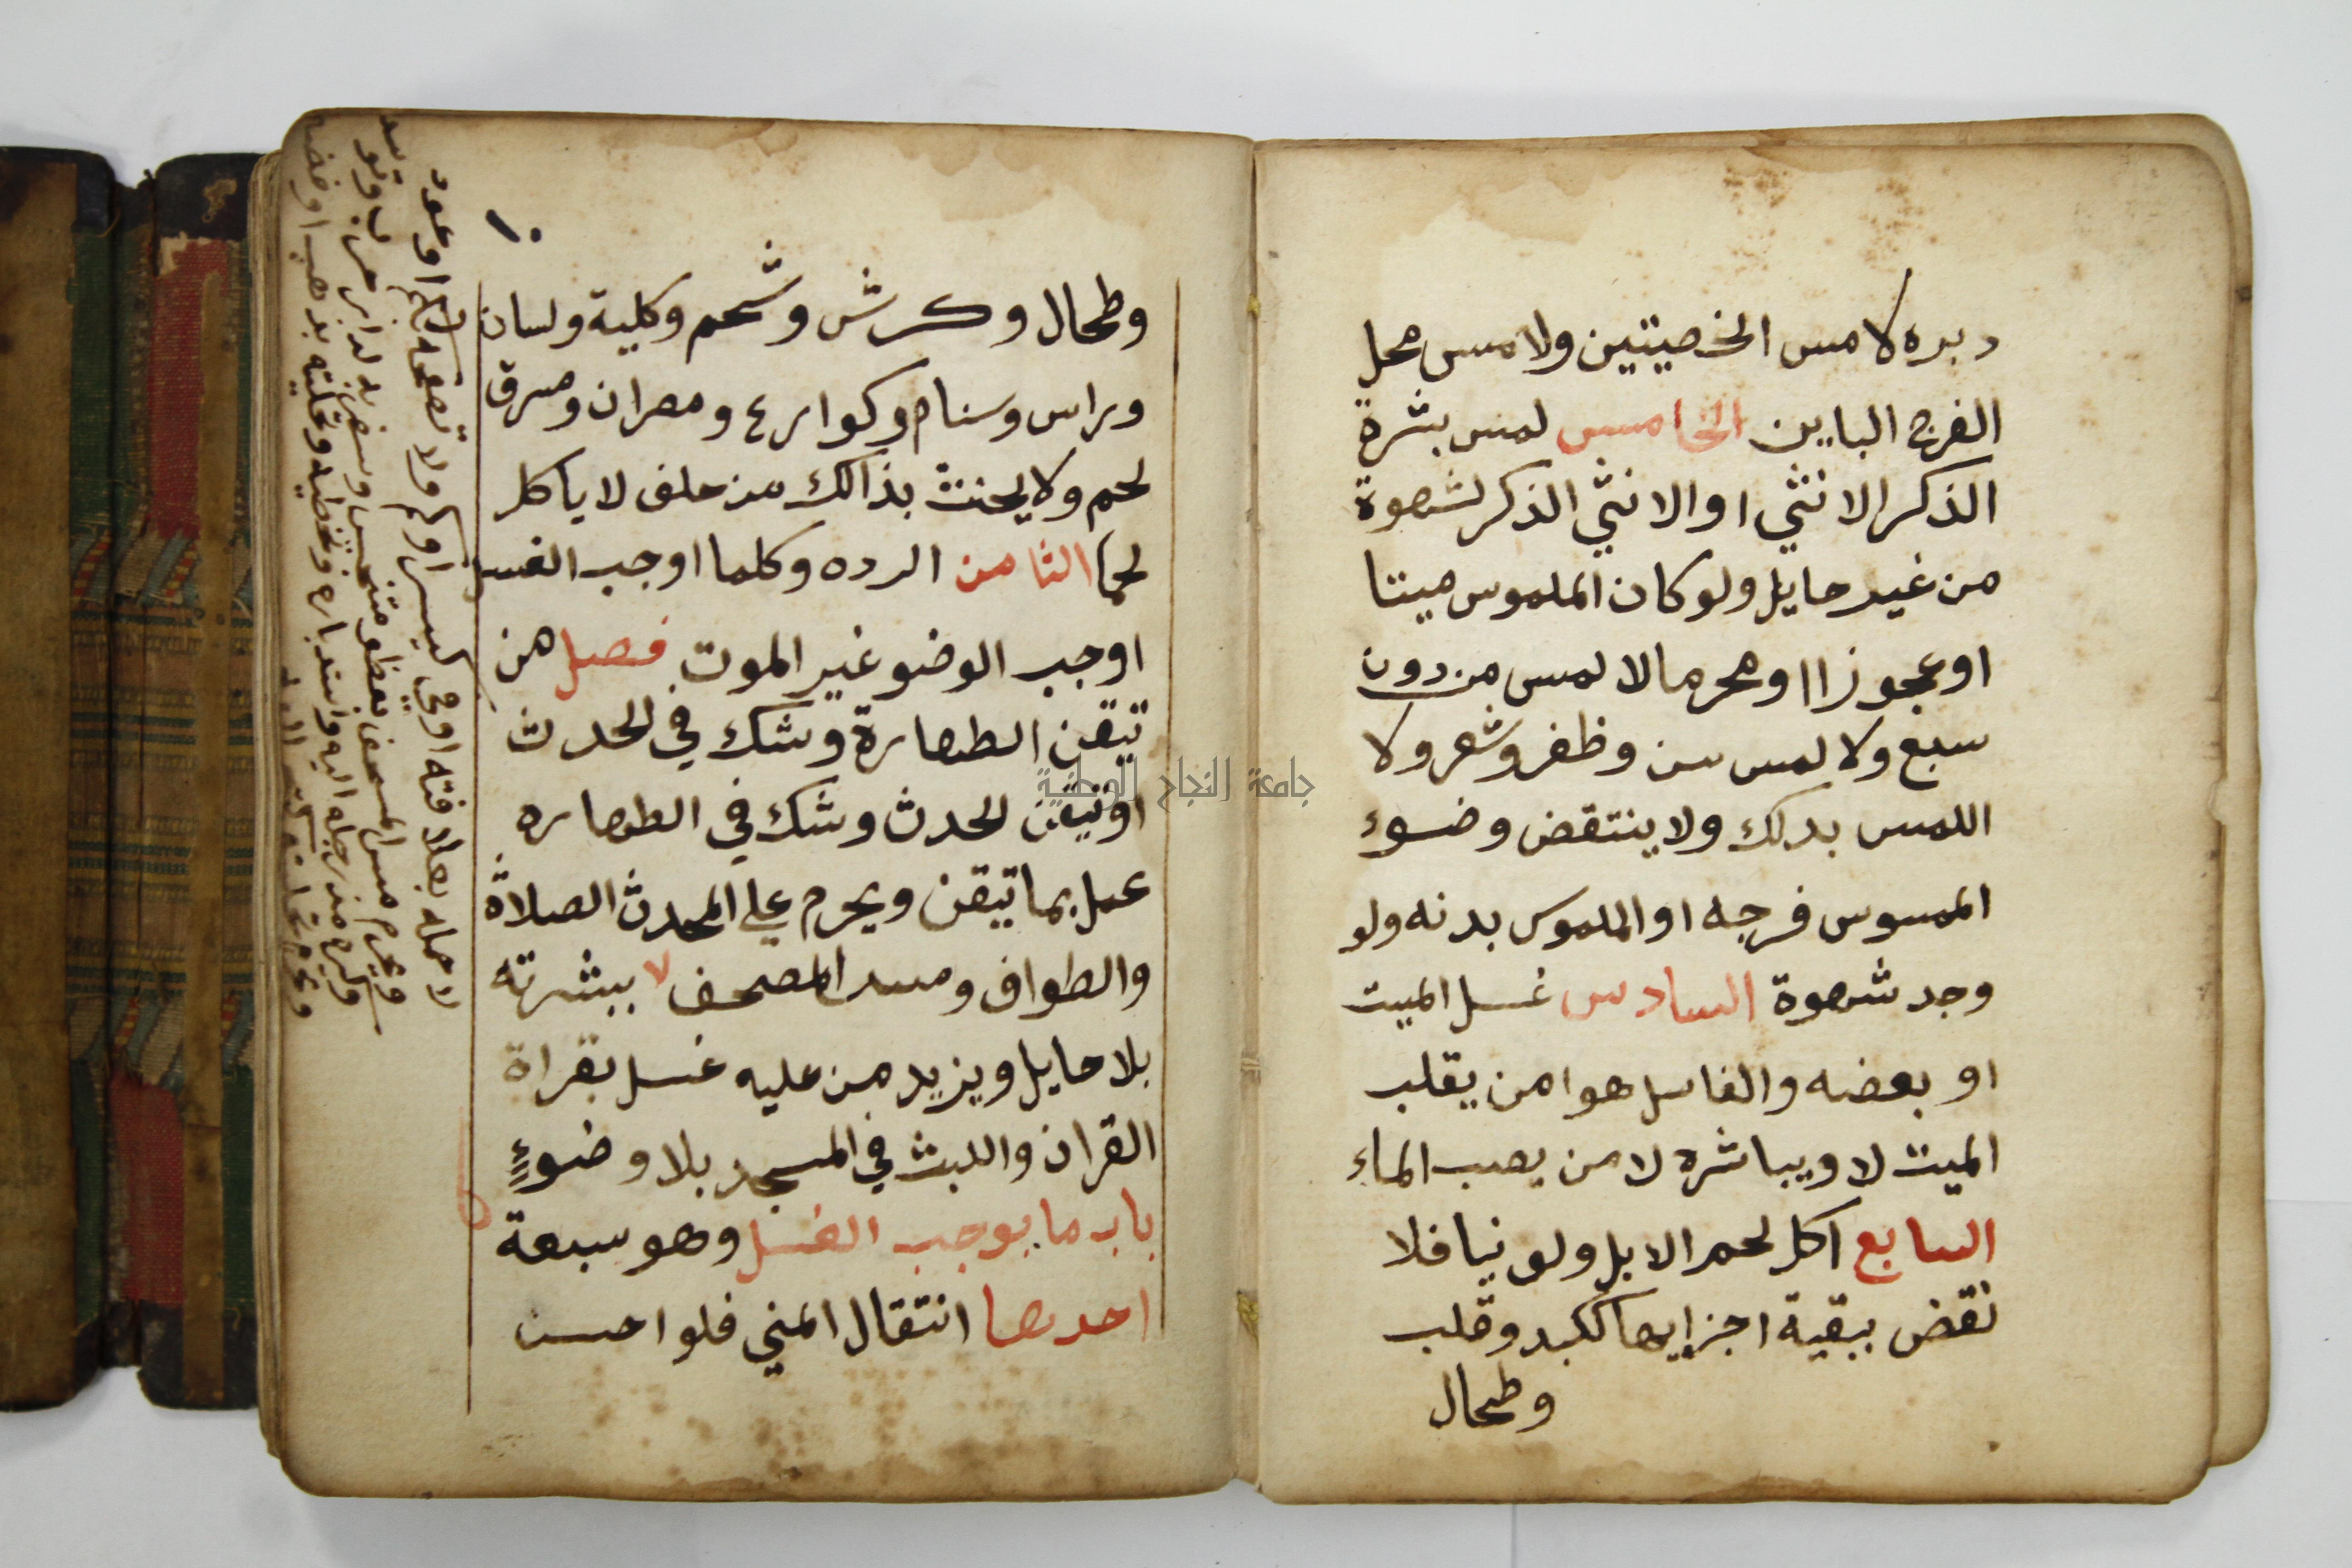 دبره لا مس الخصيتين ولا مس محل
الفرج الباين الخامس لمس بشرة
الذكر الانثي او الانثي الذكر لشهوة
من غير حايل ولو كان الملموس ميتا
او عجوزاا ومحرما لا لمس من دون
سبع ولا لمس سن وظفر وشعر ولا
اللمس بدلك ولا ينتقض وضوء
الممسوس فرجه او الملموس بدنه ولو
وجد شهوة السادس غسل الميت
او بعضه والغاسل هوا من يقلب
الميت لا ويباشره لا من يصب الماء
السابع اكل لحم الابل ولو نيا فلا
نقض ببقية اجزايها ككبد وقلب
وطحال
١٠
وطحال وكرش وشحم وكلية ولسان
وراس وسنام وكوارع ومصران ومرق
لحم ولا يحنث بذالك من حلف لا ياكل
لحما الثامن الرده وكلما اوجب الغسل
اوجب الوضو غير الموت فصل من
تيقن الطهارة وشك في الحدث
او تيقن الحدث وشك في الطهاره
عمل بما تيقن ويحرم علي المحدث الصلاة
والطواف ومس المصحف ٧ ببشرته
بلا حايل ويزيد من عليه غسل بقراة
القران واللبث في المسجد بلا وضوء
باب ما يوجب الغسل وهو سبعة
احدها انتقال المني فلو احس
لا حمله بعلاقته او في كيس او كم ولا تصفحه بكم او عود
ويحرم مس المصحف بعضو متنجس وسفر به لدار حرب وتوسد
وكره مد رجله اليه واستدباره وتخطيه وتحليته بذهب او فضه
جامعة النجاح الوطنية